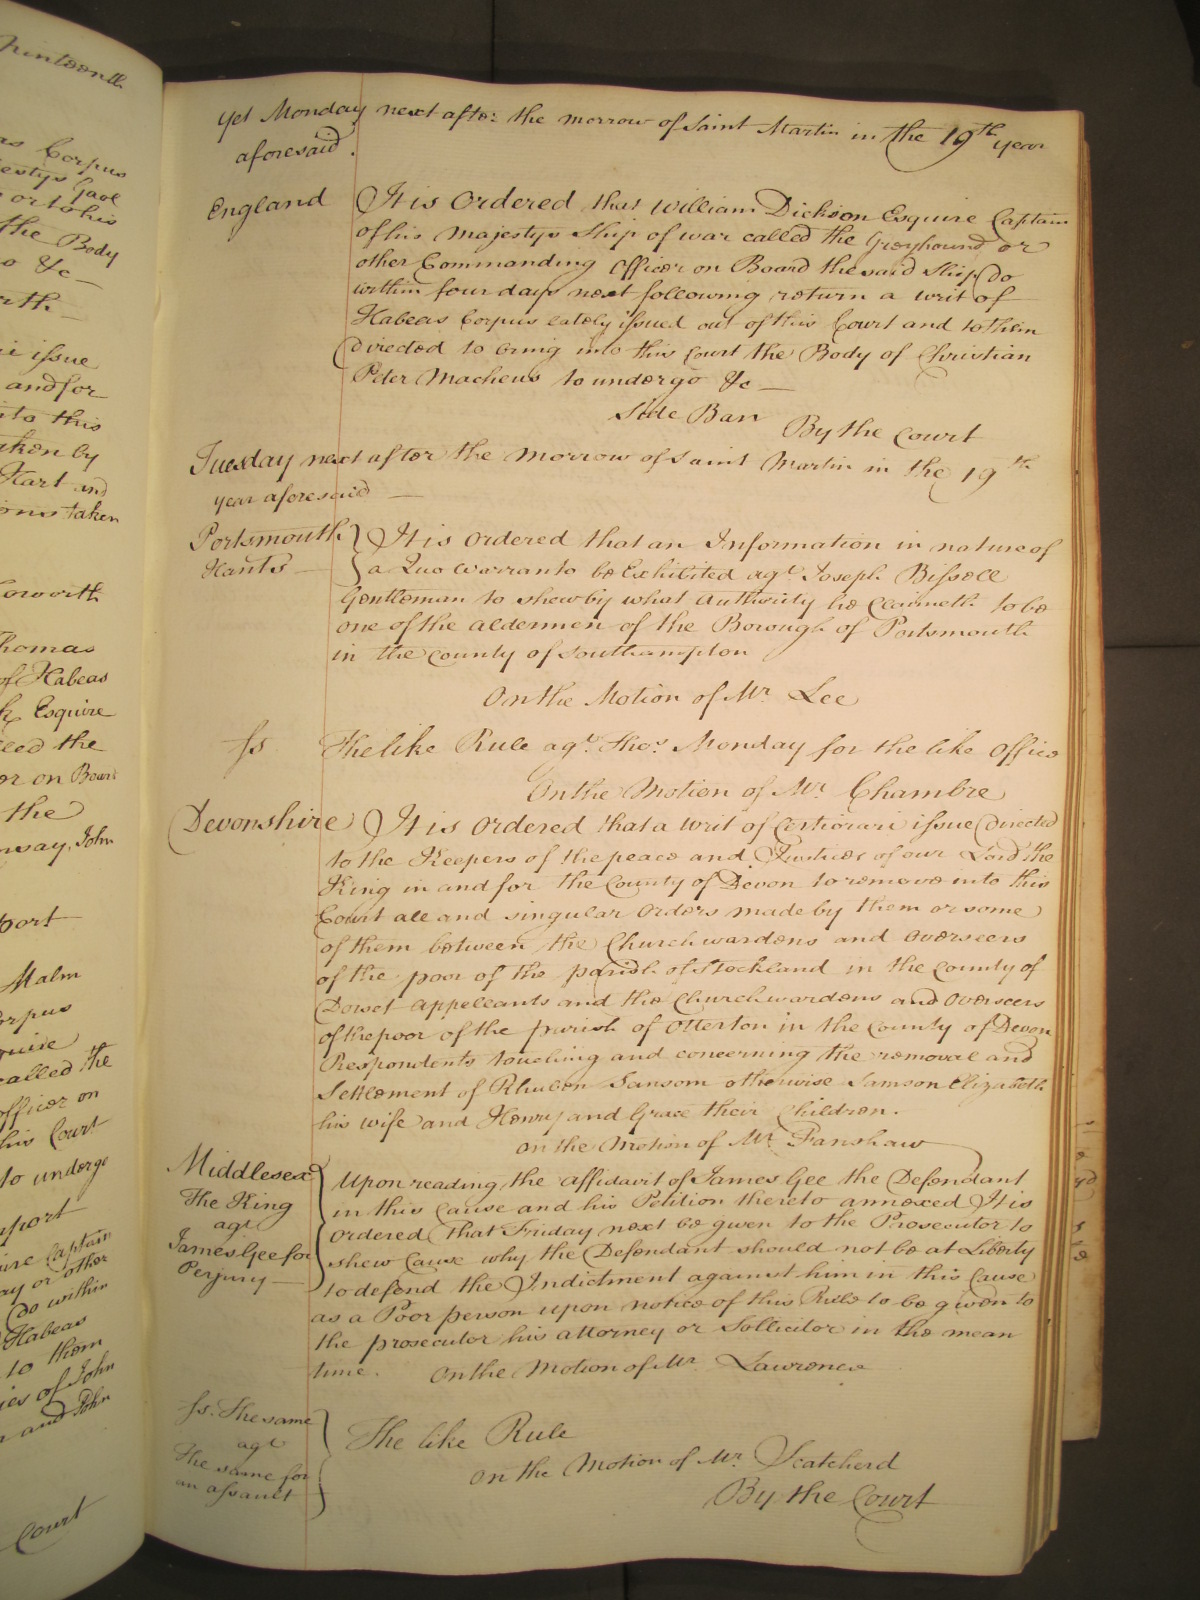 yet Monday next after the morrow of Saint Martin in the 19th year
aforesaid.
England It is Ordered that William Dickson Esquire Captain
of his Majestys Ship of war called the Greyhound or
other Commanding Officer on Board the said Ship Do
within four days next following return a writ of
Habeas Corpus lately issued out of this Court and to them
Directed to bring into this Court the Body of Christian
Peter Macheus to undergo &c
Side Barr By the Court
Tuesday next after the morrow of Saint Martin in the 19th
year aforesaid
Portsmouth } It is Ordered that an Information in nature of
Hants } a Quo Warranto be Exhibited agt. Joseph Bissell
Gentleman to shew by what Authority he claimeth to be
one of the Aldermen of the Borough of Portsmouth
in the County of Southampton
On the Motion of Mr. Lee
Ss The like Rule agt. Thos. Monday for the like Office
On the Motion of Mr. Chambre
Devonshire It is Ordered that a writ of Certiorari issue Directed
to the Keepers of the peace and Justices of our Lord the
King in and for the County of Devon to remove into this
Court all and singular Orders made by them or some
of them between the Churchwardens and Overseers
of the poor of the parish of Stockland in the County of
Dorset Appellants and the Churchwardens and Overseers
of the poor of the parish of Otterton in the County of Devon
Respondents touching and concerning the removal and
Settlement of Rhuben Sansom otherwise Samson Elizabeth
his wife and Henry and Grace their Children.
On the Motion of Mr. Fanshaw
Middlesex
The King
agt
James Gee for
Perjury
Upon reading the affidavit of James Gee the Defendant
in this Cause and his Petition thereto annexed It is
Ordered that Friday next be given to the Prosecutor to
shew Cause why the Defendant should not be at Liberty
to defend the Indictment against him in this Cause
as a Poor person upon notice of this Rule to be given to
the prosecutor his attorney or Sollicitor in the mean
time. On the Motion of Mr. Lawrence
Ss. The same
agt
The same for
an assault
The like Rule
On the Motion of Mr. Scatcherd
By the Court